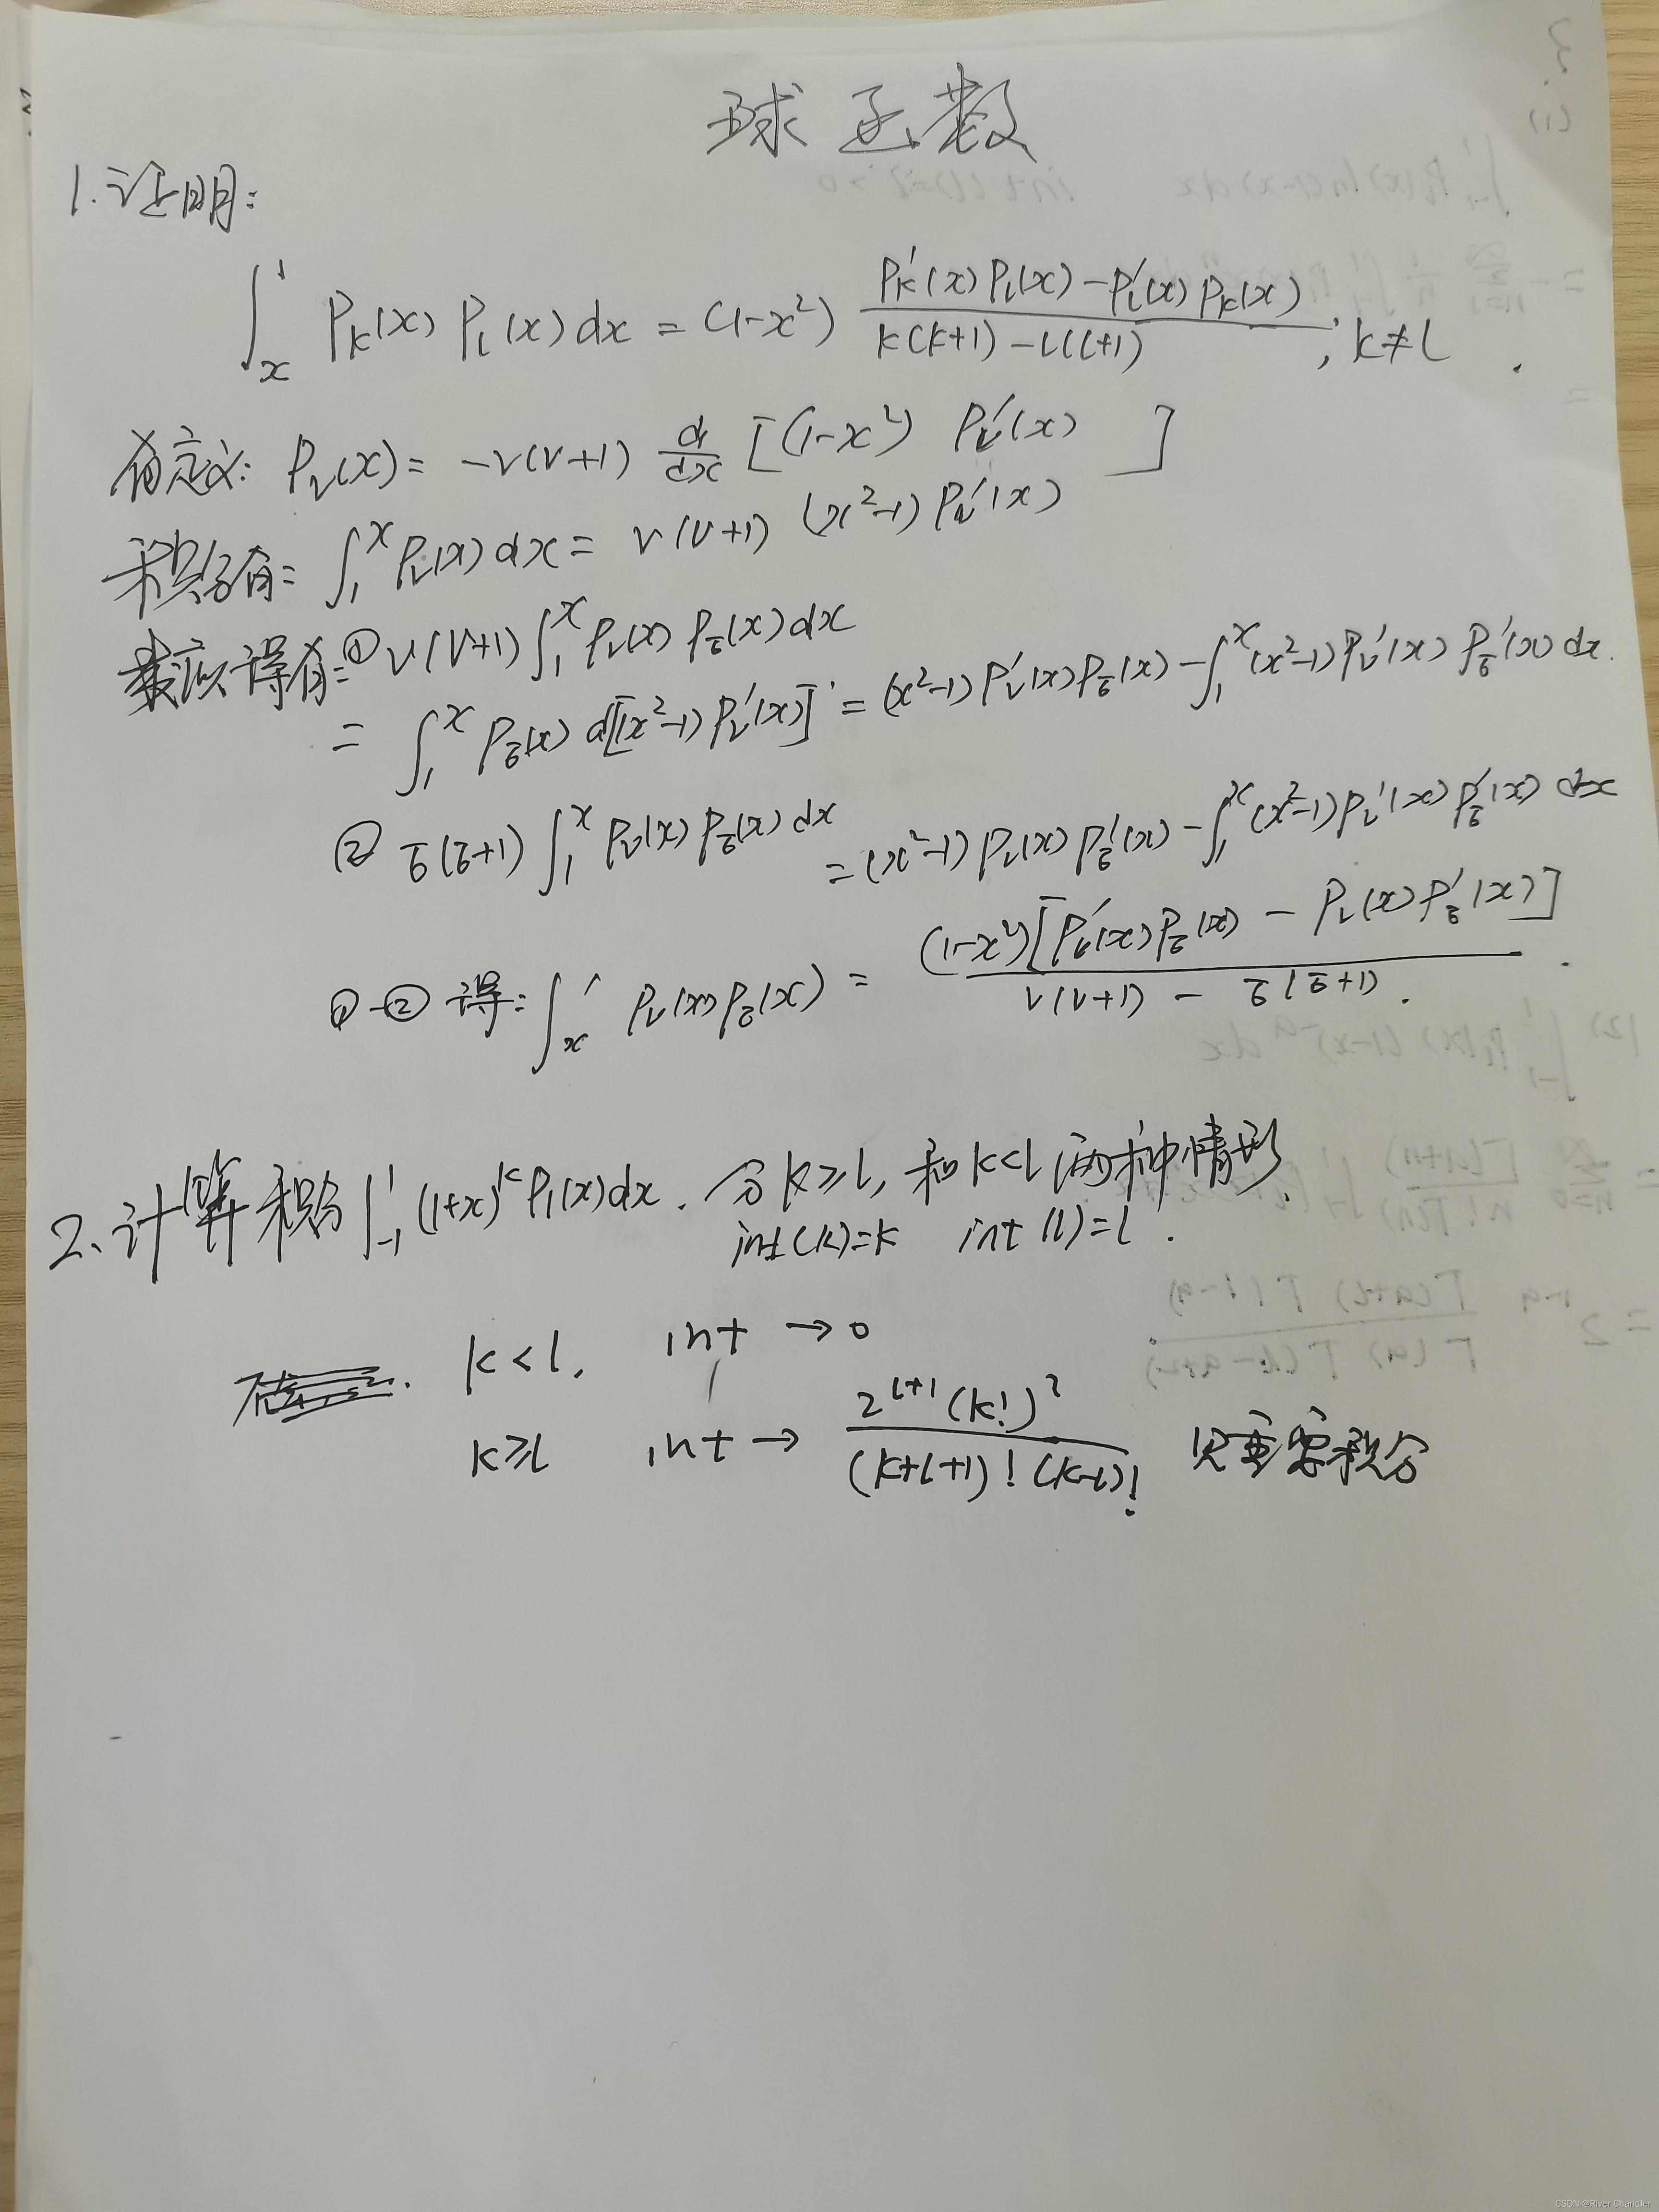 球函数
1.证明:
∫_x^1 P_k(x) P_l(x) dx = (1-x²) (P_k'(x) P_l(x) - P_l'(x) P_k(x)) / (k(k+1) - l(l+1)), k≠l.
有定义: P_ν(x) = -ν(ν+1) d/dx [(1-x²) P_ν'(x) ]
积分有: ∫_1^x P_ν(x) dx = ν(ν+1) (x²-1) P_ν'(x)
得有: ① ν(ν+1) ∫_1^x P_ν(x) P_σ(x) dx
= ∫_1^x P_σ(x) d[(x²-1) P_ν'(x)] = (x²-1) P_ν'(x) P_σ(x) - ∫_1^x (x²-1) P_ν'(x) P_σ'(x) dx.
② σ(σ+1) ∫_1^x P_ν(x) P_σ(x) dx = (x²-1) P_ν(x) P_σ'(x) - ∫_1^x (x²-1) P_ν'(x) P_σ'(x) dx
①-② 得: ∫_x^1 P_ν(x) P_σ(x) = (1-x²)[P_ν'(x) P_σ(x) - P_ν(x) P_σ'(x)] / (ν(ν+1) - σ(σ+1)).
2.计算积分 ∫_{-1}^1 (1+x)^k P_l(x) dx. 分k≥l, 和k<l两种情形.
int(k)=k int(l)=l.
k<l, int → 0
k≥l int → 2^{l+1} (k!)² / ((k+l+1)! (k-l)!) 见重要积分
CSDN @River Chandler